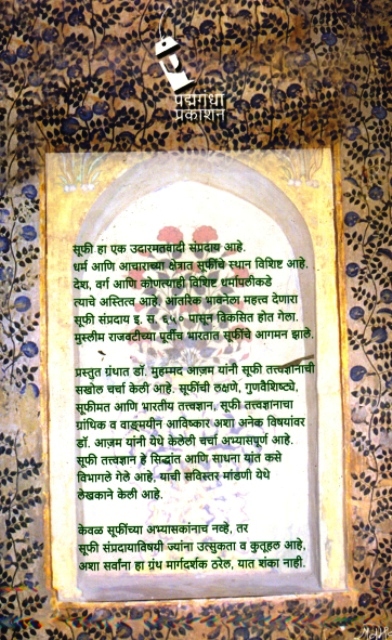 पद्मगंधा
प्रकाशन
सूफी हा एक उदारमतवादी संप्रदाय आहे.
धर्म आणि आचाराच्या क्षेत्रात सूफींचे स्थान विशिष्ट आहे.
देश, वर्ग आणि कोणत्याही विशिष्ट धर्मापलीकडे
त्याचे अस्तित्व आहे. आंतरिक भावनेला महत्त्व देणारा
सूफी संप्रदाय इ. स. ६५० पासून विकसित होत गेला.
मुस्लीम राजवटीच्या पूर्वीच भारतात सूफींचे आगमन झाले.
प्रस्तुत ग्रंथात डॉ. मुहम्मद आज़म यांनी सूफी तत्त्वज्ञानाची
सखोल चर्चा केली आहे. सूफींची लक्षणे, गुणवैशिष्ट्ये,
सूफीमत आणि भारतीय तत्त्वज्ञान, सूफी तत्त्वज्ञानाचा
ग्रांथिक व वाङ्मयीन आविष्कार अशा अनेक विषयांवर
डॉ. आज़म यांनी येथे केलेली चर्चा अभ्यासपूर्ण आहे.
सूफी तत्त्वज्ञान हे सिद्धांत आणि साधना यांत कसे
विभागले गेले आहे, याची सविस्तर मांडणी येथे
लेखकाने केली आहे.
केवळ सूफींच्या अभ्यासकांनाच नव्हे, तर
सूफी संप्रदायाविषयी ज्यांना उत्सुकता व कुतूहल आहे,
अशा सर्वांना हा ग्रंथ मार्गदर्शक ठरेल, यात शंका नाही.